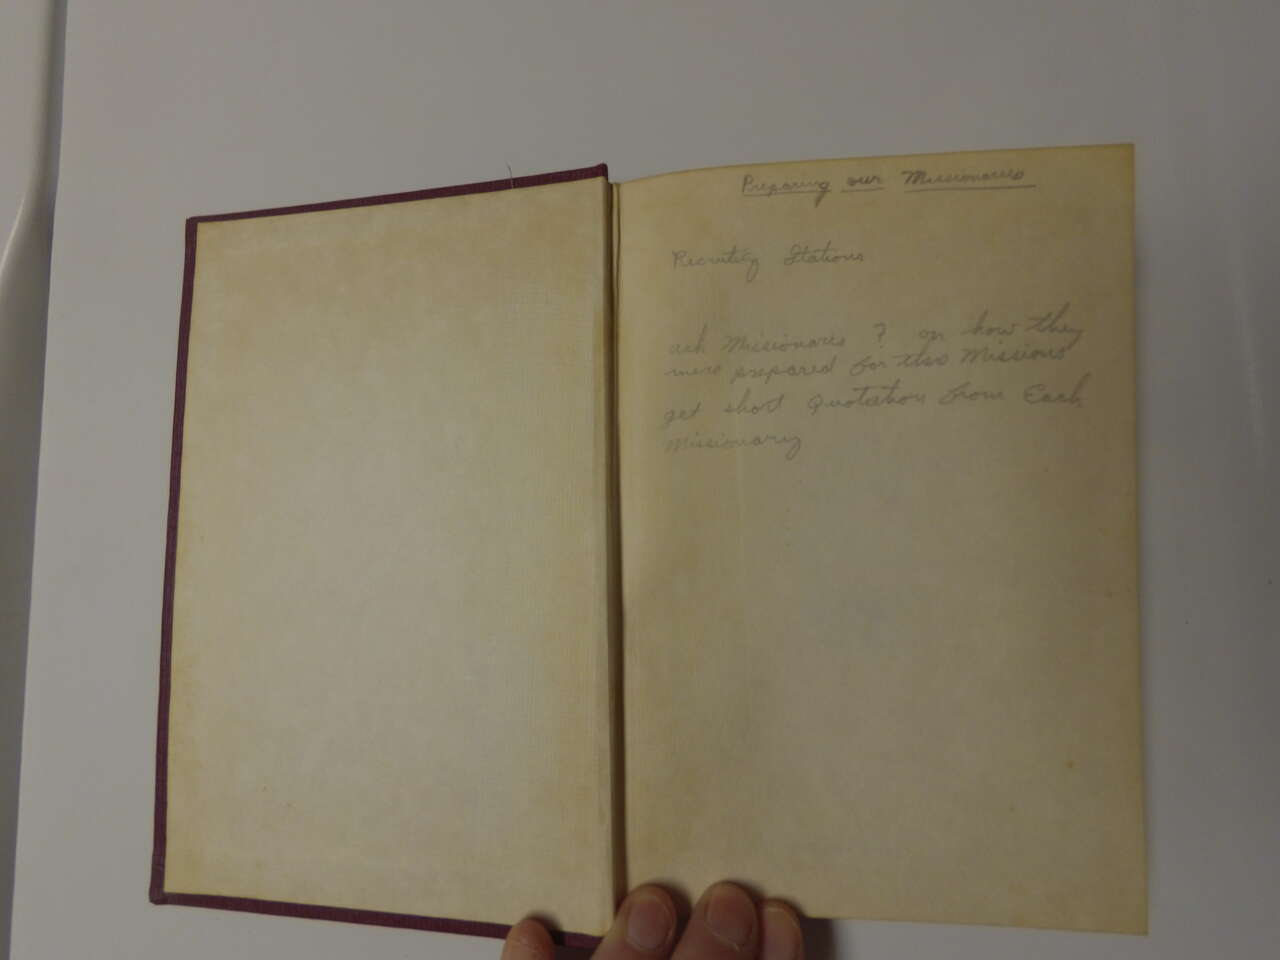 Preparing our Missionaries
Recruiting Stations
ask Missionaries ? on how they
were prepared for the Missions
get short Quotation from Each
Missionary